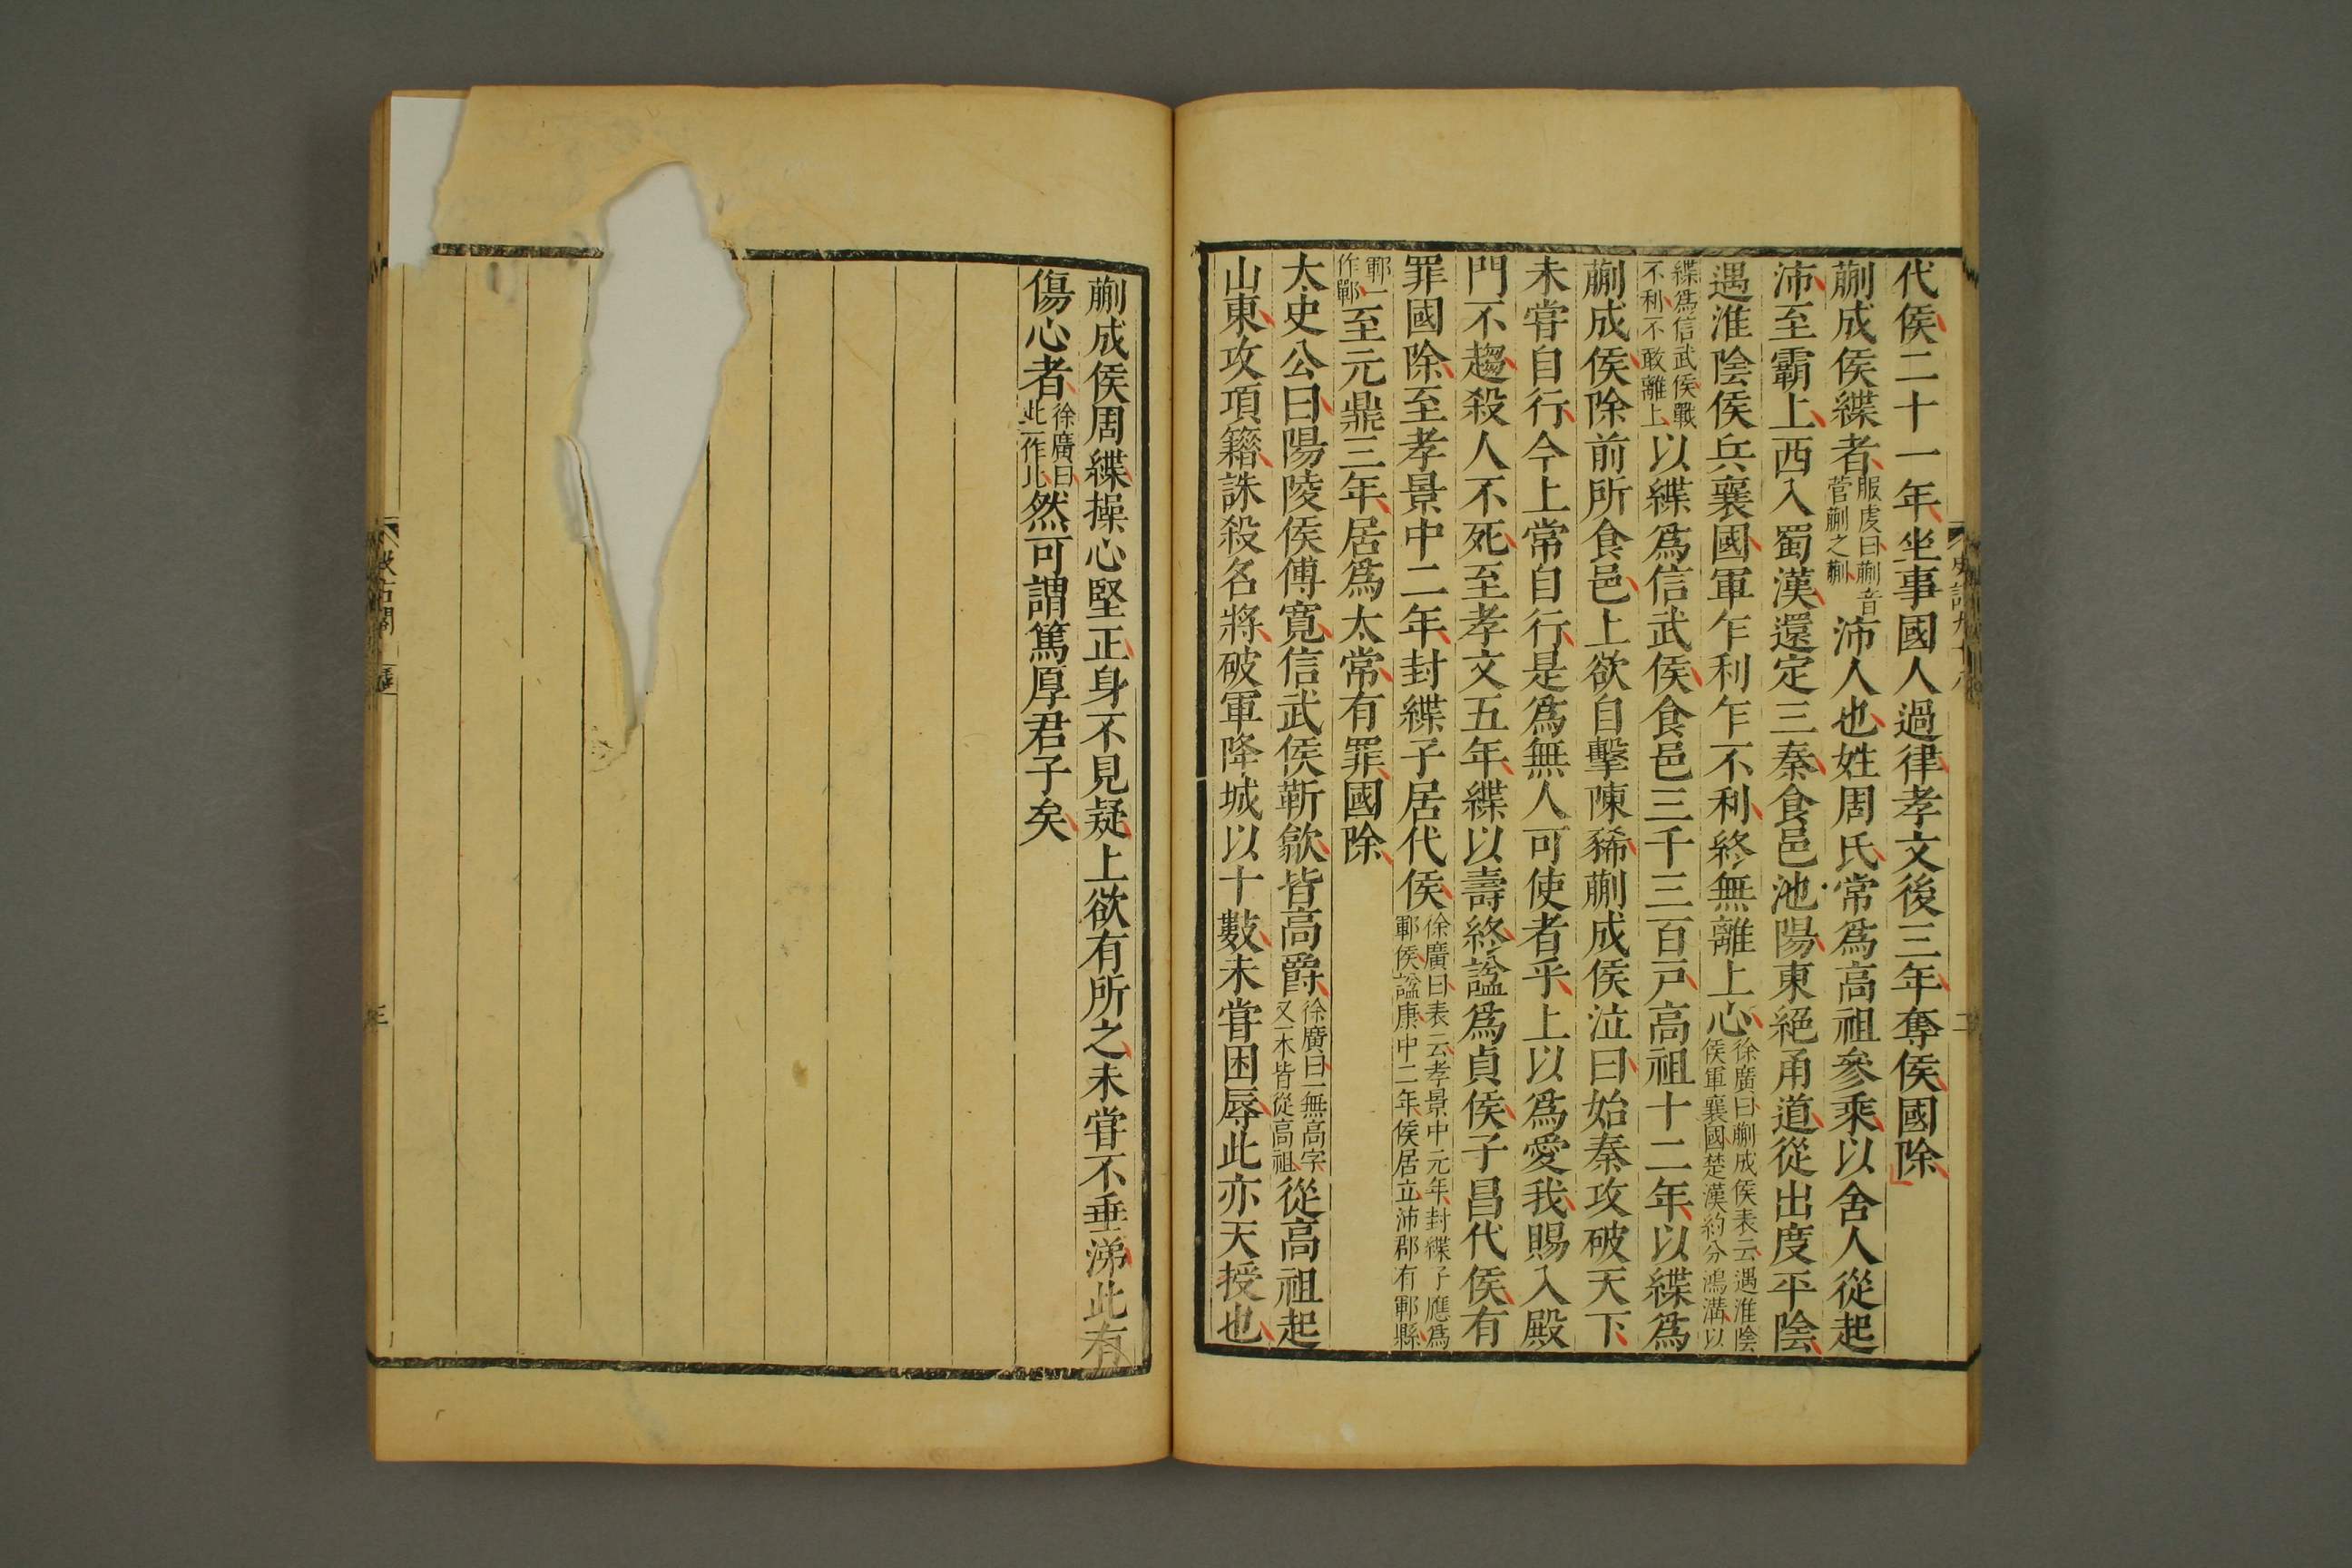 代侯二十一年坐事國人過律孝文後三年奪侯國除
蒯成侯緤者服虔曰蒯音菅蒯之蒯沛人也姓周氏常爲高祖參乘以舍人從起
沛至霸上西入蜀漢還定三秦食邑池陽東絕甬道從出度平陰
遇淮陰侯兵襄國軍乍利乍不利終無離上心徐廣曰蒯成侯表云遇淮陰侯軍襄國楚漢約分鴻溝以
緤爲信武侯戰不利不敢離上以緤爲信武侯食邑三千三百戸高祖十二年以緤爲
蒯成侯除前所食邑上欲自擊陳豨蒯成侯泣曰始秦攻破天下
未甞自行今上常自行是爲無人可使者乎上以爲愛我賜入殿
門不趨殺人不死至孝文五年緤以壽終諡爲貞侯子昌代侯有
罪國除至孝景中二年封緤子居代侯徐廣曰表云孝景中元年封緤子應爲鄲侯諡康中二年侯居立沛郡有鄲縣
鄲一作鄿至元鼎三年居爲太常有罪國除
太史公曰陽陵侯傅寬信武侯靳歙皆高爵徐廣曰一無高字又一本皆從高祖從高祖起
山東攻項籍誅殺名將破軍降城以十數未甞困辱此亦天授也
蒯成侯周緤操心堅正身不見疑上欲有所之未甞不垂涕此有
傷心者徐廣曰此一作比然可謂篤厚君子矣